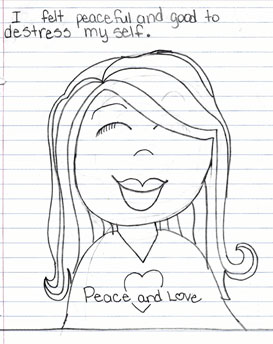 I felt peaceful and good to
destress my self.
Peace and Love